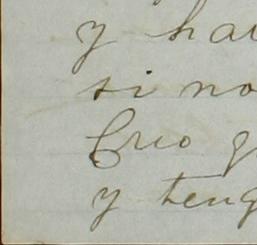 y hai
si no
Creo q
y teng